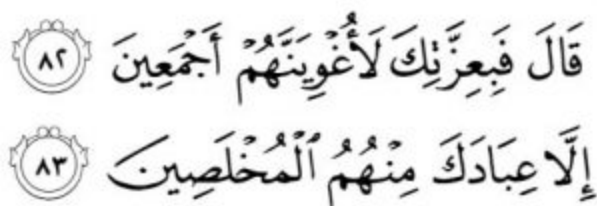 قَالَ فَبِعِزَّتِكَ لَأُغْوِيَنَّهُمْ أَجْمَعِينَ ٨٢
إِلَّا عِبَادَكَ مِنْهُمُ ٱلْمُخْلَصِينَ ٨٣